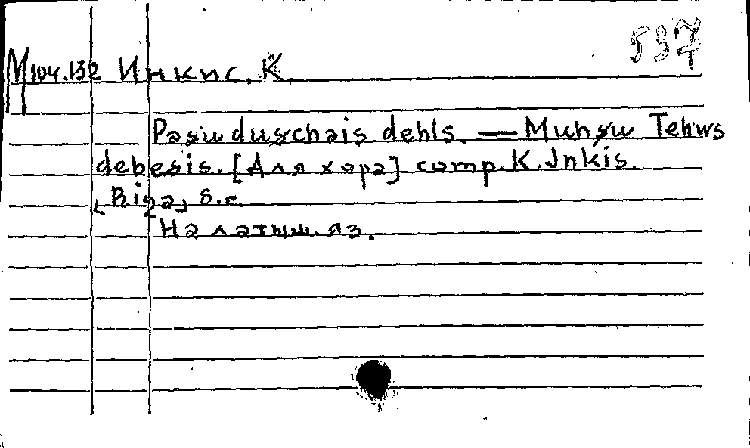 537
М 104.132 Инкис, К.
Pasuduschais dehls. — Muhsu Tehws
debesis. [Для хора] comp. K. Inkis.
[Riga] s.a.
На латыш. яз.